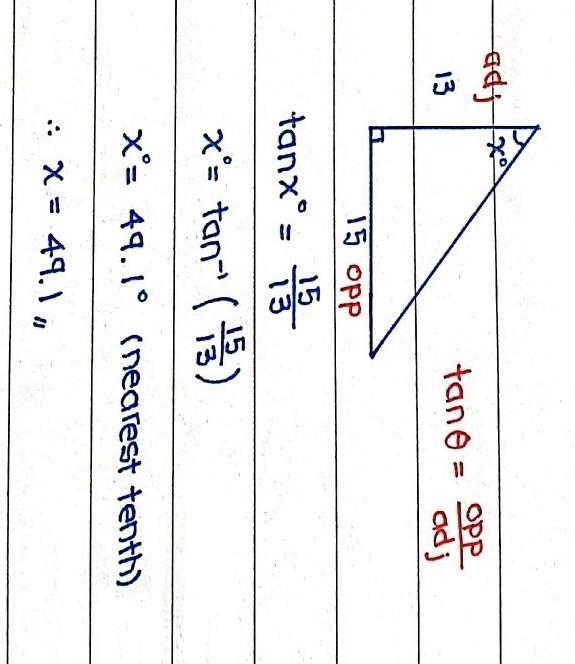 adj
13
x°
15 opp
tanθ = opp/adj
tanx° = 15/13
x° = tan⁻¹ (15/13)
x° = 49.1° (nearest tenth)
∴ x = 49.1 〃